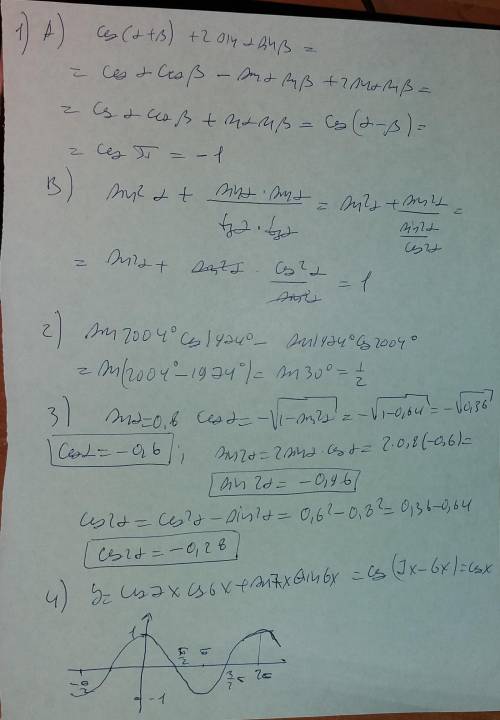 1) A) cos(α+β) + 2 sinα sinβ =
= cosα cosβ - sinα sinβ + 2 sinα sinβ =
= cosα cosβ + sinα sinβ = cos(α-β) =
= cos π = -1
B) sin²α + (sinα · sinα)/(tgα · tgα) = sin²α + sin²α/(sin²α/cos²α) =
= sin²α + sin²α · cos²α/sin²α = 1
2) sin 2004° cos 1974° - sin 1974° cos 2004°
= sin(2004° - 1974°) = sin 30° = 1/2
3) sinα = 0,8 cosα = -√(1-sin²α) = -√(1-0,64) = -√0,36
cosα = -0,6 ; sin2α = 2 sinα · cosα = 2·0,8(-0,6) =
sin 2α = -0,96
cos2α = cos²α - sin²α = 0,6² - 0,8² = 0,36 - 0,64
cos2α = -0,28
4) y = cos 7x cos 6x + sin 7x sin 6x = cos(7x-6x) = cos x
1
π/2 π
3/2 π 2π
-1